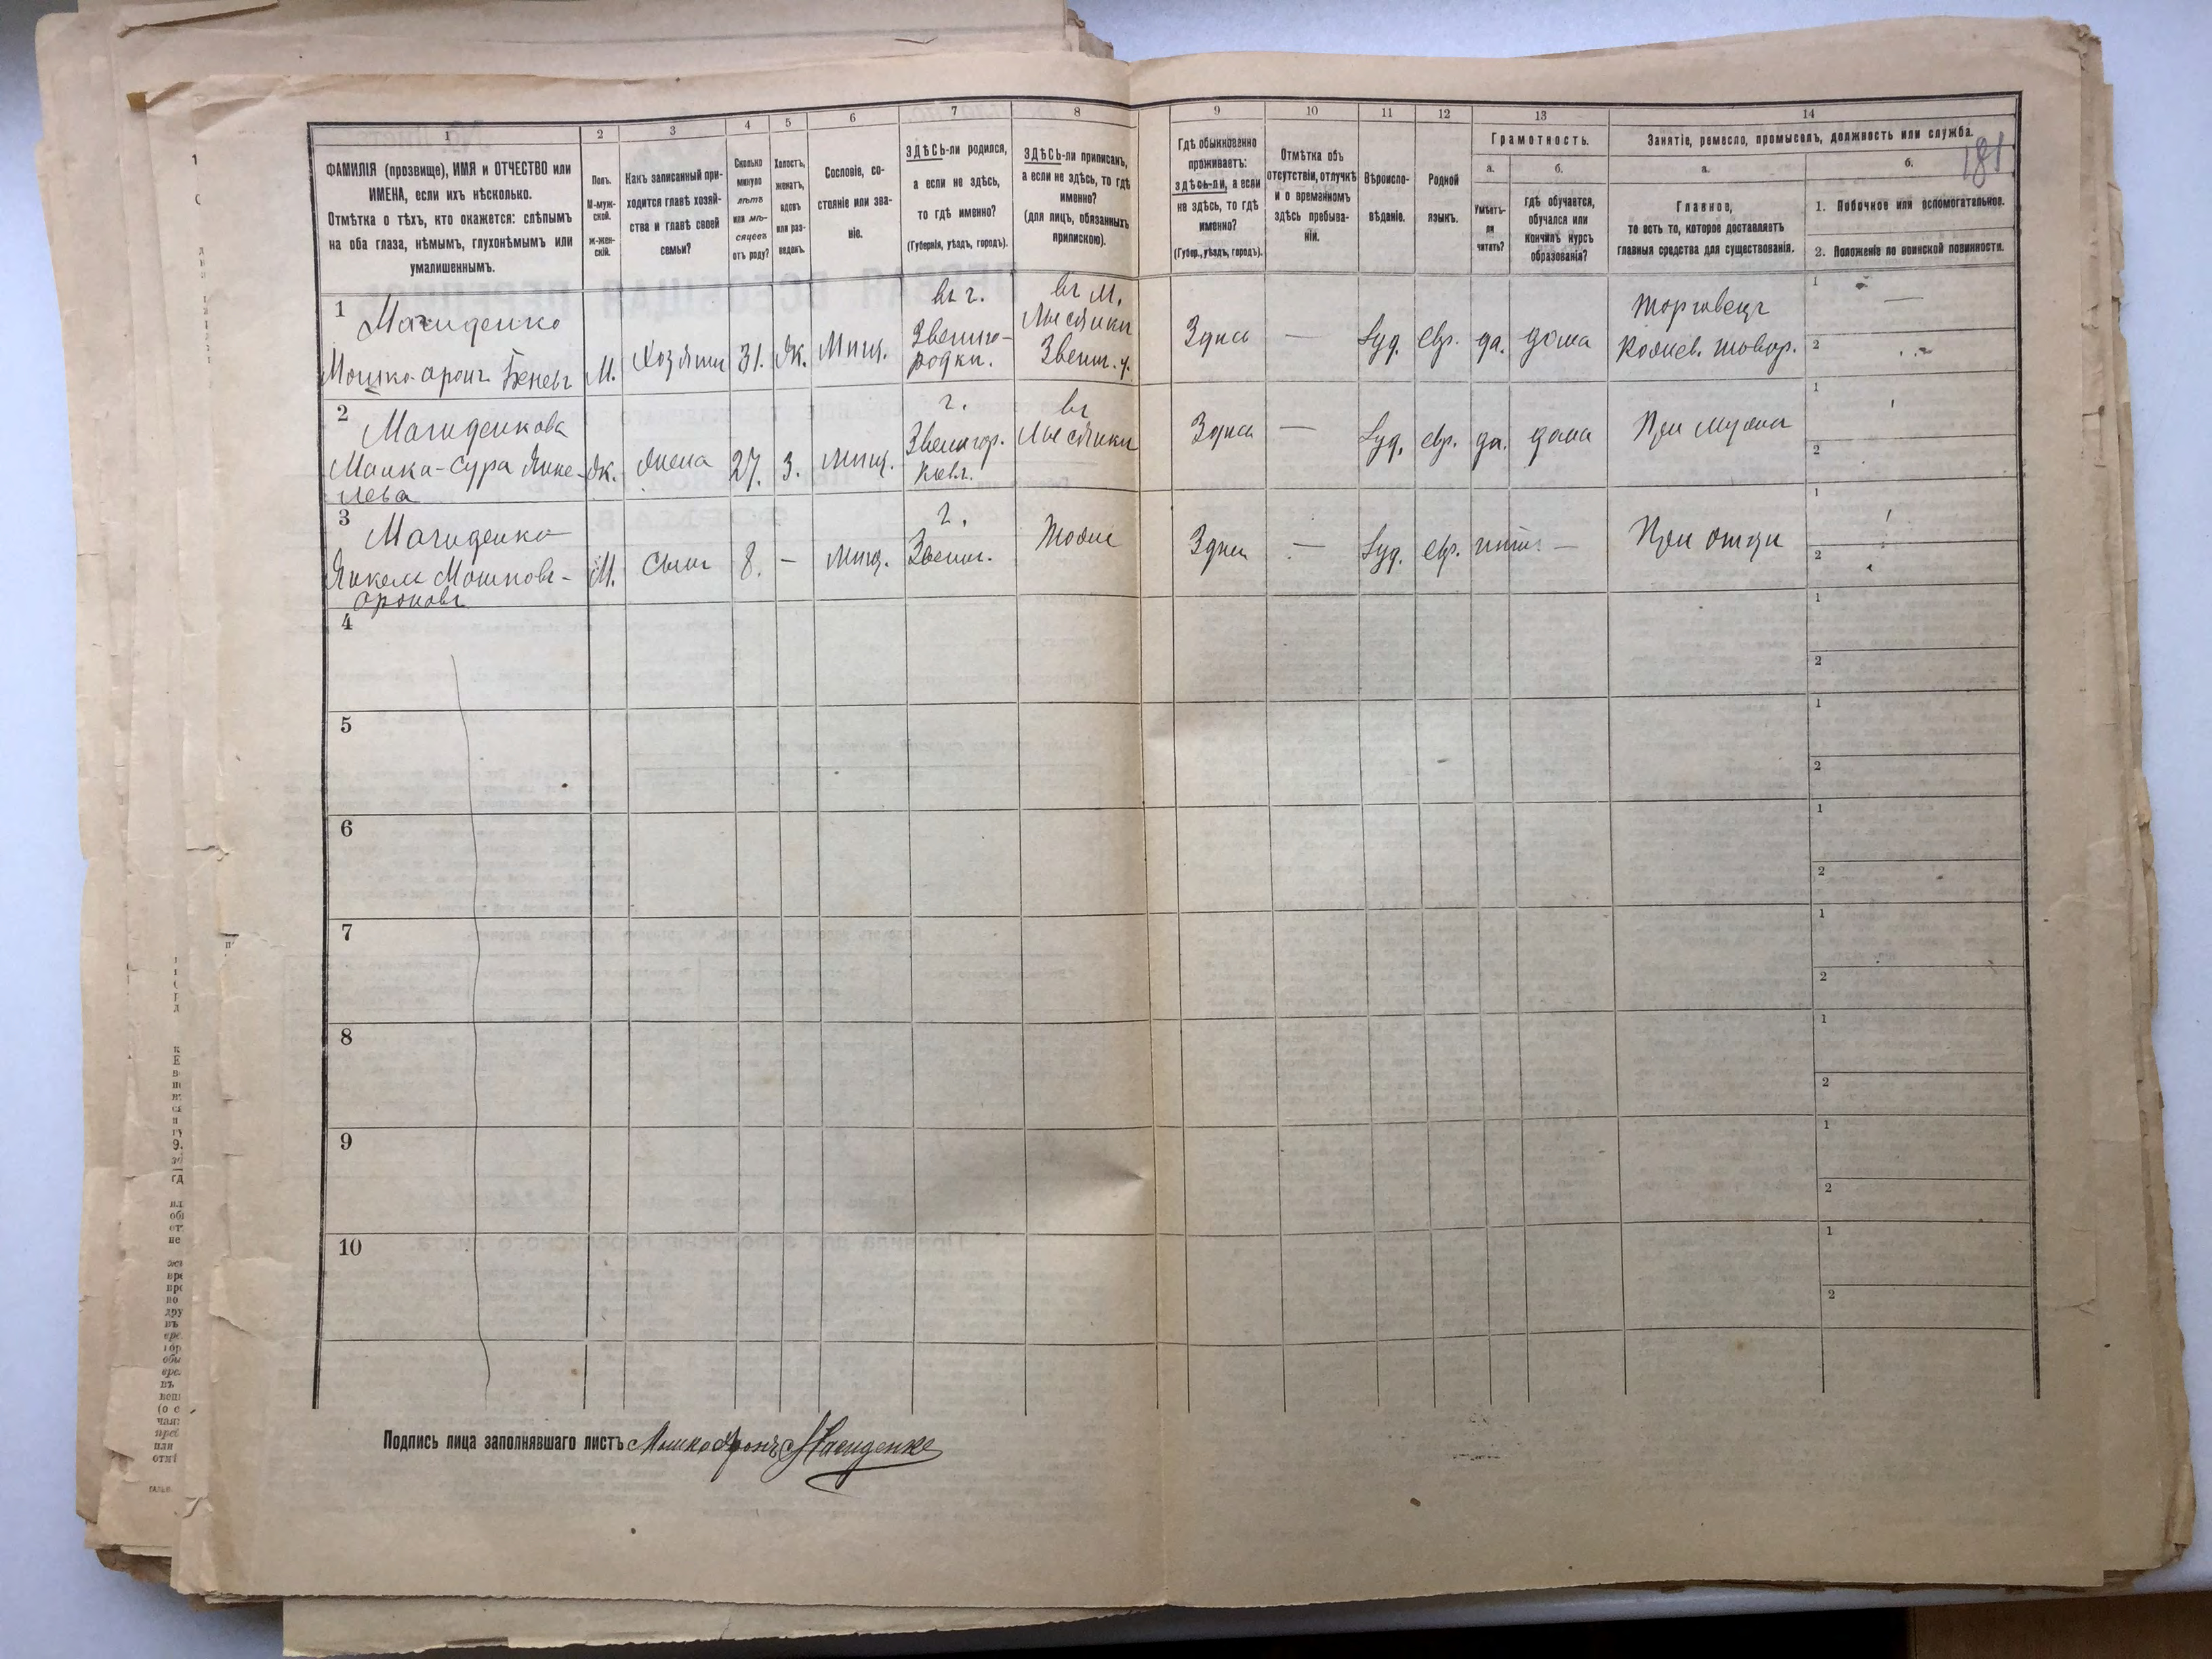 181
1 2 3 4 5 6 7 8 9 10 11 12 13 14
ФАМИЛІЯ (прозвище), ИМЯ и ОТЧЕСТВО или
ИМЕНА, если ихъ нѣсколько.
Отмѣтка о тѣхъ, кто окажется: слѣпымъ
на оба глаза, нѣмымъ, глухонѣмымъ или
умалишеннымъ.
Полъ.
М-муж-
ской.
Ж-жен-
скій.
Какъ записанный при-
ходится главѣ хозяй-
ства и главѣ своей
семьи?
Сколько
минуло
лѣтъ
или мѣ-
сяцевъ
отъ роду?
Холостъ,
женатъ,
вдовъ
или раз-
веденъ.
Сословіе, со-
стояніе или зва-
ніе.
ЗДѢСЬ-ли родился,
а если не здѣсь,
то гдѣ именно?
(Губернія, уѣздъ, городъ).
ЗДѢСЬ-ли приписанъ,
а если не здѣсь, то гдѣ
именно?
(для лицъ, обязанныхъ
припискою).
Гдѣ обыкновенно
проживаетъ:
здѣсь-ли, а если
не здѣсь, то гдѣ
именно?
(Губер., уѣздъ, городъ).
Отмѣтка объ
отсутствіи, отлучкѣ
и о временномъ
здѣсь пребыва-
ніи.
Вѣроиспо-
вѣданіе.
Родной
языкъ.
Грамотность.
а.
Умѣетъ-
ли
читать?
б.
гдѣ обучается,
обучался или
кончилъ курсъ
образованія?
Занятіе, ремесло, промыселъ, должность или служба.
а.
Главное,
то есть то, которое доставляетъ
главныя средства для существованія.
б.
1. Побочное или вспомогательное.
2. Положеніе по воинской повинности.
1
Магиденко
Мошко-Аронъ Беневъ
М.
Хозяинъ
31.
Ж.
Мѣщ.
въ г.
Звениго-
родки.
въ м.
Лысянки
Звениг. у.
Здѣсь
—
Іуд.
евр.
да.
дома
Торговецъ
1 —
2
2
Магиденкова
Малка-Сура Янке-
лева
Ж.
Жена
27.
З.
Мѣщ.
г.
въ
Лысянки
Здѣсь
—
Іуд.
евр.
да.
дома
При мужѣ
1
2
3
Магиденко
Янкель Мошковъ-
Ароновъ
М.
Сынъ
8.
—
Мѣщ.
г.
Звениг.
Тоже
Здѣсь
—
Іуд.
евр.
нѣтъ
—
При отцѣ
1
2
4
1
2
5
1
2
6
1
2
7
1
2
8
1
2
9
1
2
10
1
2
Подпись лица заполнявшаго листъ Мошко Аронъ Магиденко